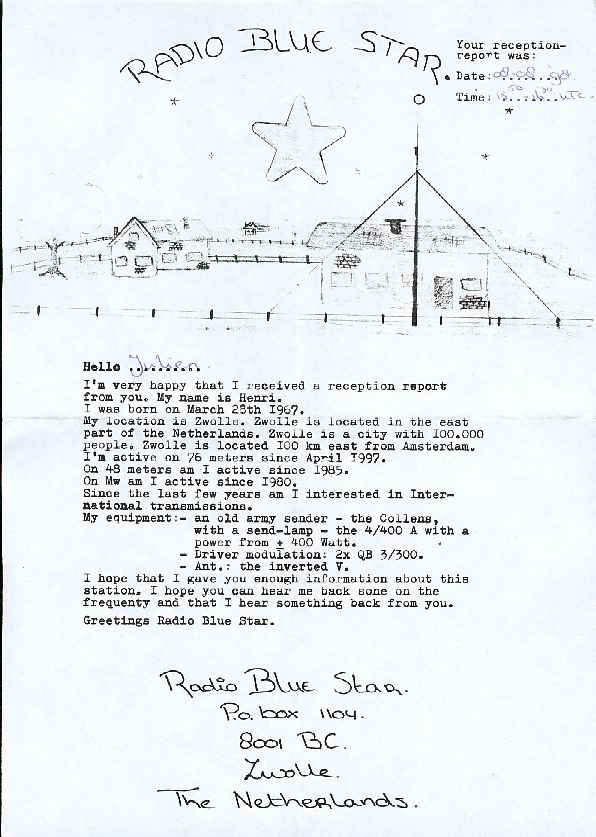 RADIO BLUE STAR.
Your reception-
report was:
Date:
Time: UTC.
Hello Julien
I'm very happy that I received a reception report
from you. My name is Henri.
I was born on March 25th I967.
My location is Zwolle. Zwolle is located in the east
part of the Netherlands. Zwolle is a city with I00.000
people. Zwolle is located I00 km east from Amsterdam.
I'm active on 76 meters since April I997.
On 48 meters am I active since I985.
On Mw am I active since I980.
Since the last few years am I interested in Inter-
national transmissions.
My equipment:- an old army sender - the Collens,
with a send-lamp - the 4/400 A with a
power from ± 400 Watt.
- Driver modulation: 2x QB 3/300.
- Ant.: the inverted V.
I hope that I gave you enough information about this
station. I hope you can hear me back sone on the
frequenty and that I hear something back from you.
Greetings Radio Blue Star.
Radio Blue Star.
P.o. box 1104.
8001 BC.
Zwolle.
The Netherlands.